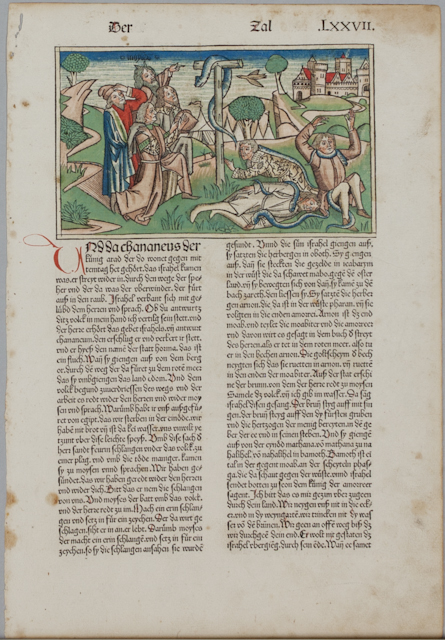 Der
Zal
.LXXVII.
VNd da chananeus der
künig arad der do wonet gegen mit
temtag het gehört. das israhel kumen
was. er streyt wider in. durch den wege der spe⸗
her vnd der da was der überwinder. der fürt
auß in den raub. Israhel verband sich mit ge⸗
lübd dem herren vnd sprach. Ob du antwurtz
ditz volck in mein hand ich vertilg sein stett. vnd
der herre erhört das gebet israhels.
vnd er hyeß den namē der stat horma. das ist
ein fluch. Vnd sy giengen auß von dem berg
durch dē weg der da füret zu dem roten meer
das sy vmbgiengen das land edom. Vnd dem
volck begund
arbeit es redt wider den herren vnd wider moy
sen vnd sprach. Warumb hastu vns außgefürt
von egipt. das wir sterben in der einöde. wir
habē nit brot es ist da kei wasser.
yetzunt über dise leichte speyß. Vmb dise sach
herr sandt feurin schlangen vnder das volck. zu
einer plag. vnd vmb die töde maniger. kamen
sy zu moysen vnnd sprachen. Wir haben ge⸗
sündet. das wir haben geredt wider den herren
vnd wider dich. Bitt das er nem die schlangen
von vns. Vnd moyses der batt vmb das volck.
vnd der herre redt zu im. Mach ein erin schlan⸗
gen vnd setz in für ein zeychen. Der da wirt ge
schlagen. siht er in an. er lebt. Darumb moyses
der macht ein erin schlangē. vnd setzt in für ein
zeychen. so sy die schlangen ansahen sy wurdē
gesundt. Vnnd die sün israhel giengen auß.
sy satzten die herbergen in oboth.
dan sy steckten die gezelde in neabarym
in der wüst die da schawet moab. gegē dē oster
land. vnd sy bewegten sich von dan. sy kamē zu dē
bach zareth. den liessen sy. Sy satztē die herber
gen arnon. die da ist in der wüste
vnd in den enden amorreer. Arnon ist dz end
moab. vnd teylet die moabiter vnd die amorreer
vnd dauon wirt es gesagt in dem buch d streyt
des herren. als er tet in dem roten meer. also tu
er in den bechen arnon. Die gestheyme d bech
neygten sich das sie ruetten in arnon. vnd ruettē
in den enden der moabiter. Auß der stat erschi
ne der brunn. von dem der herre redt zu moysen
Samele dz volck. vnd ich gib im wasser. Da sag
israhel disen gesang. Der brun steyg auff mit sun
gen. der brun steyg auff den dy fürsten gruben
vnd die hertzogen der menig bereyten. in dē ge
ber der ee vnd in seinen steben. Vnd sy gienge
auß von der eynöd mathana. vō mathana zu na
hallihel. vō nahallihel in bamoth. Bamoth ist ei
tal in der gegent moab. an der scheyteln phas
ga. die da schawt gegen der wüste. vnnd israhel
sendet botten zu seon dem künig der amorreer
sagent. Ich bitt das es mir gezim vber zugeen
durch dein land. Wir neygen vns nit in die eck
er. vnd in dy weyngartē. wir trincken nit dy was
ser vō dē brünen. Wir geen an offē weg biß dz
wir durchgeē dein end. Er wolt nit gestaten dz
israhel